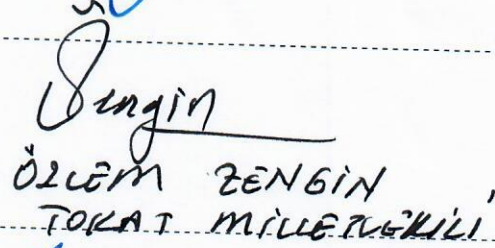 Zengin
ÖZLEM ZENGİN
TOKAT MİLLETVEKİLİ